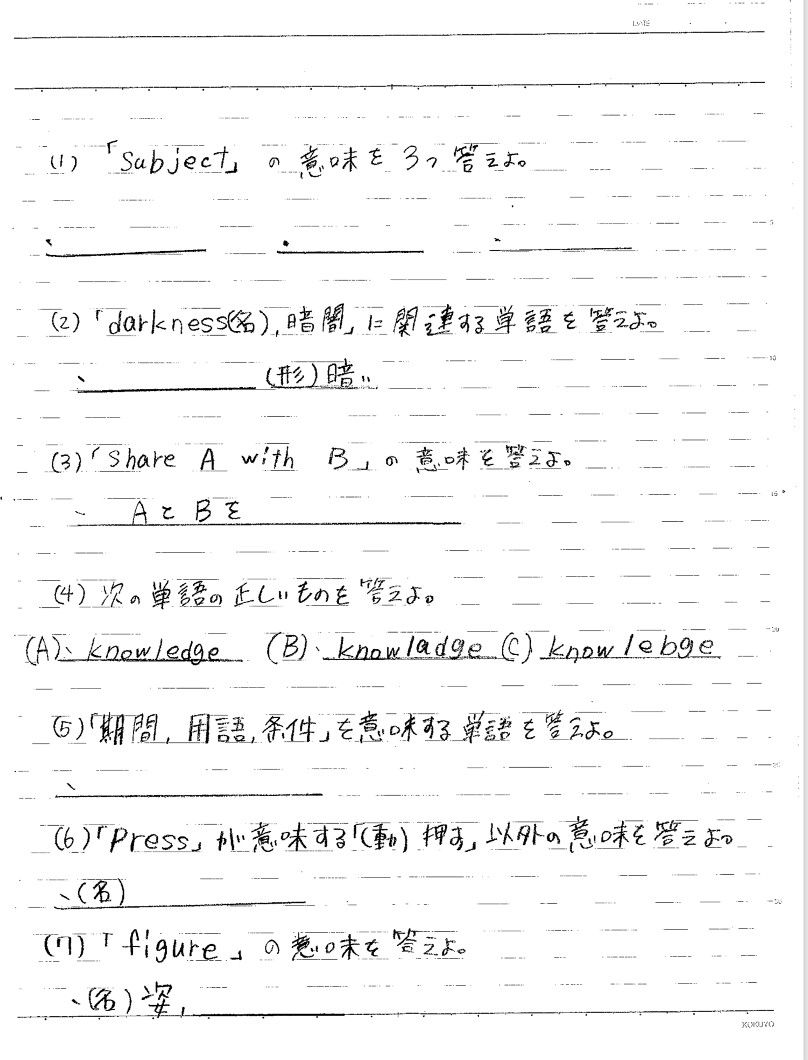 DATE
(1) 「Subject」 の 意味を 3つ 答えよ。
(2) 「darkness(名), 暗闇」に関連する単語を答えよ。
、 (形) 暗い
(3) 「Share A with B」の意味を答えよ。
、 AとBを
(4) 次の単語の正しいものを答えよ。
(A)、knowledge (B)、knowladge (C) knowlebge
(5) 「期間, 用語, 条件」を意味する単語を答えよ。
、
(6) 「Press」が意味する「(動) 押す」以外の意味を答えよ。
、(名)
(7) 「figure」の意味を答えよ。
、(名) 姿,
KOKUYO